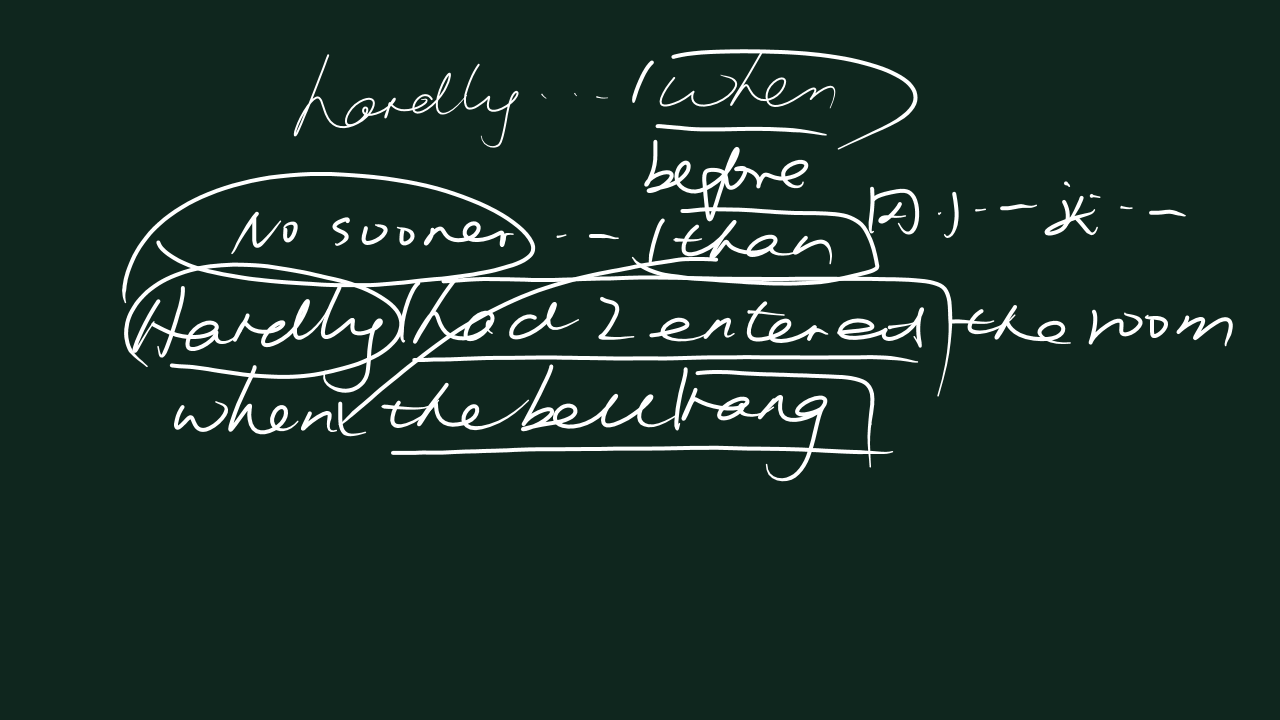 hardly ... when
before
No sooner ... than 刚...就...
Hardly had I entered the room
when the bell rang